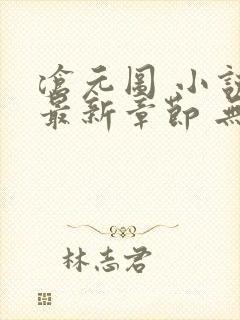 滄元图 小說
最新章節 無
林志君